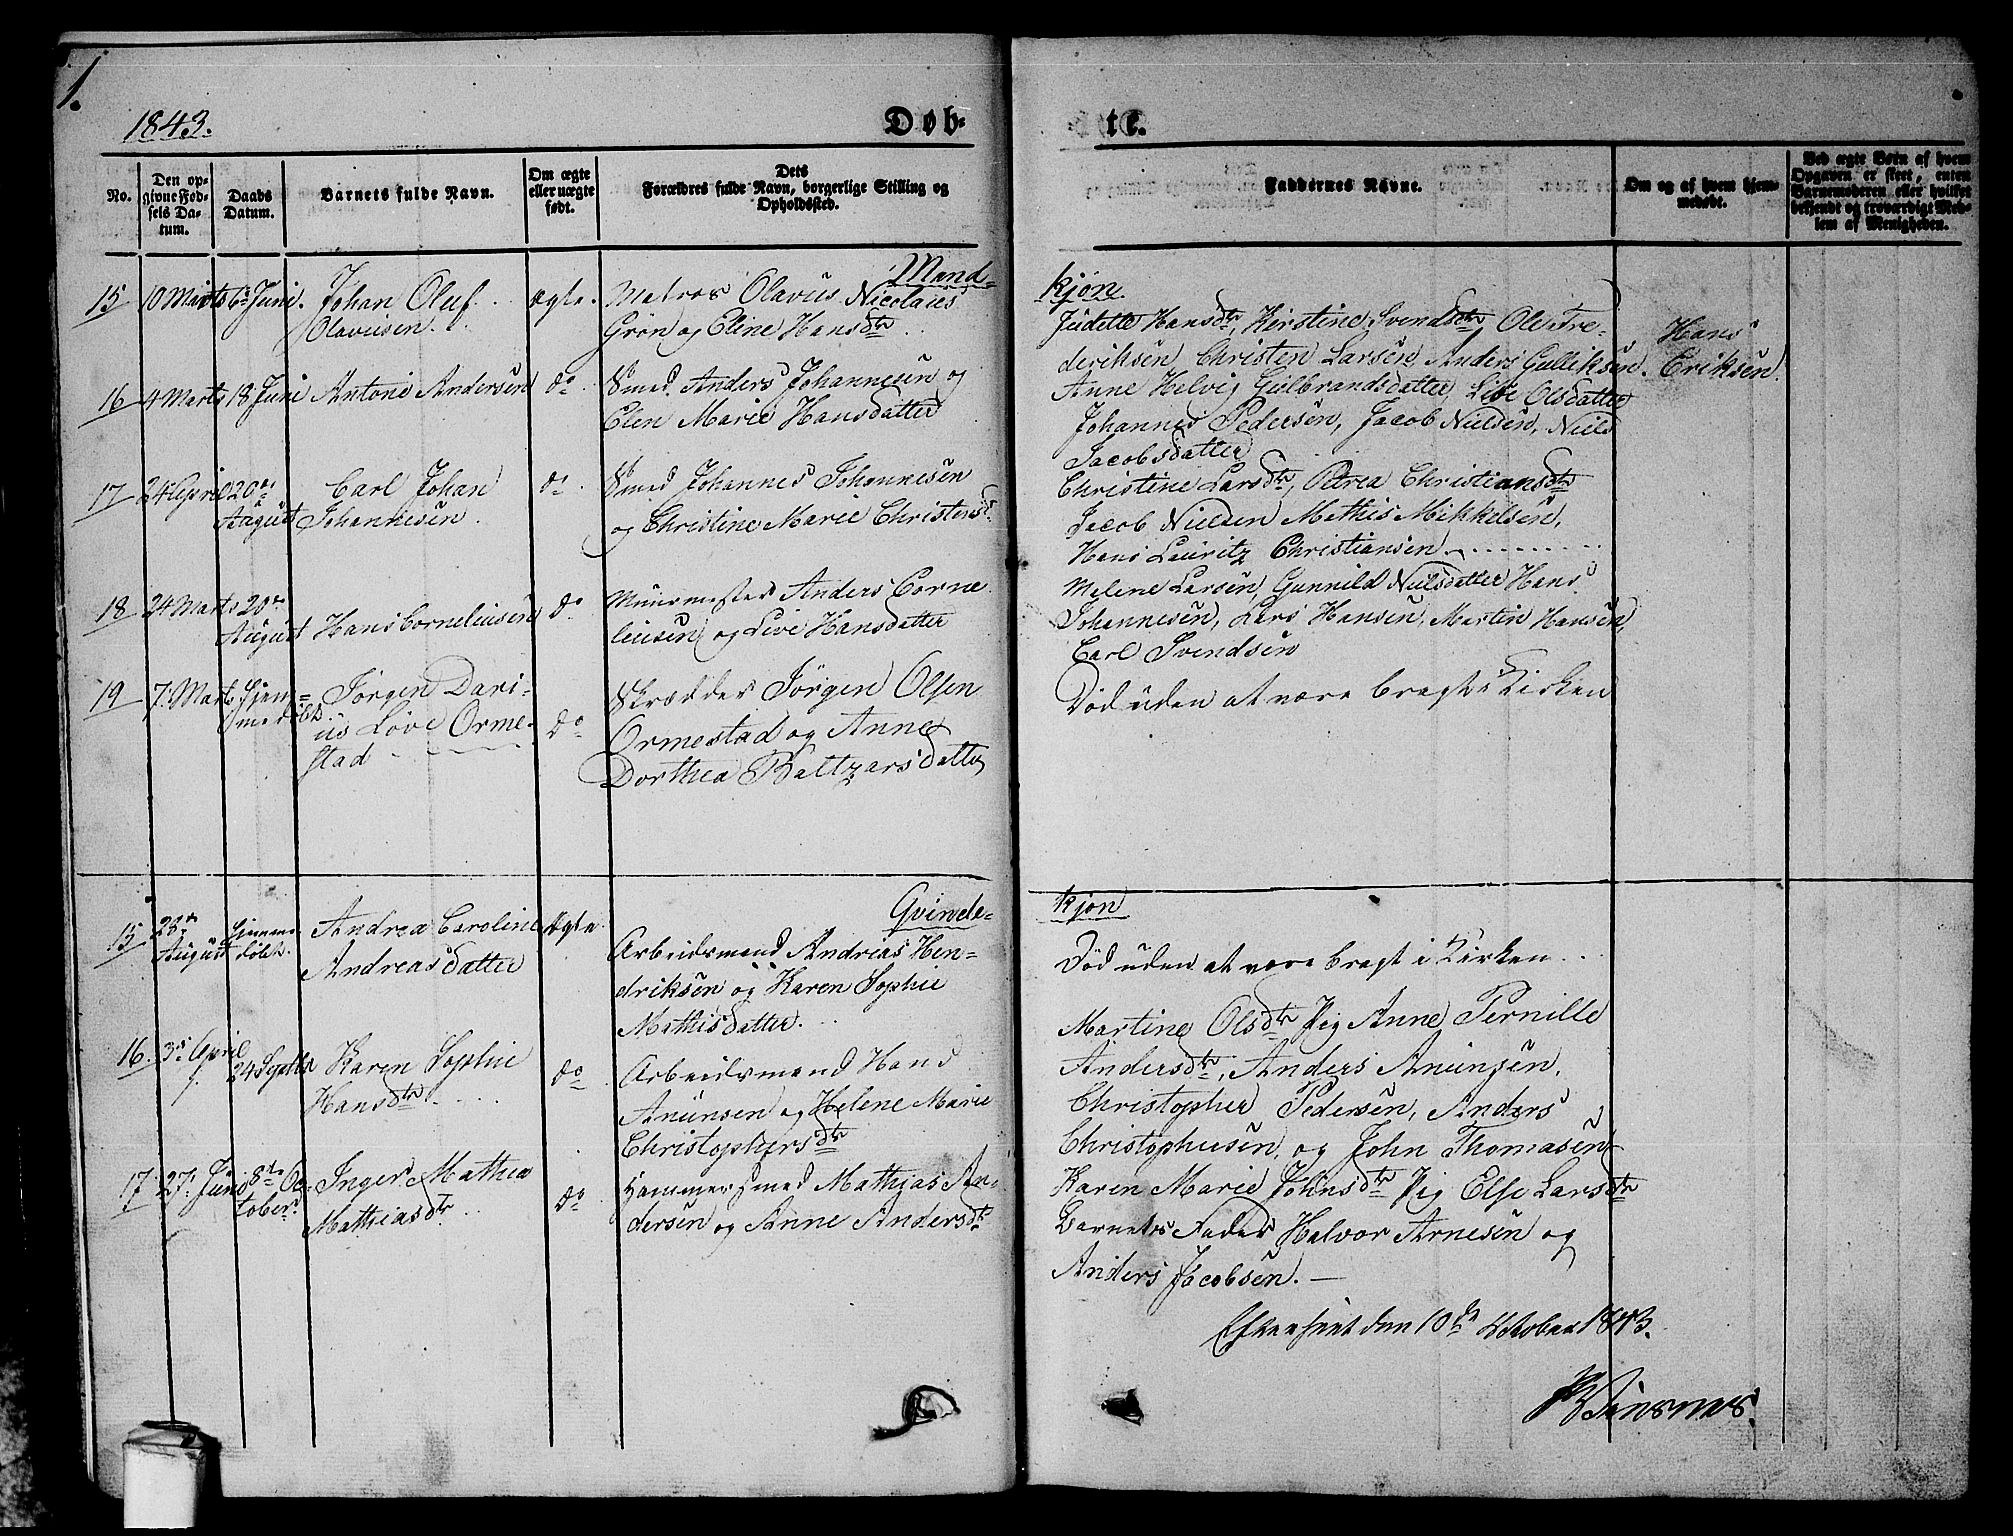 1.
1843.
Døb-
te.
No.
Den op-
givne Fød-
sels Da-
tum.
Daabs
Datum.
Barnets fulde Navn.
Om ægte
eller uægte
født.
Dets
Forældres fulde Navn, borgerlige Stilling og
Opholdssted.
Faddernes Navne.
Om og af hvem hjem-
medøbt.
Ved ægte Børn af hvem
Opgaven er skeet, enten
Barnemoderen eller hvilket
bekjendt og troværdigt Med-
lem af Menigheden.
Mand-
kjøn
15 10 Marts 6 Juni. Johan Oluf
Olaviusen.
ægte.
Matros Olavus Nicolaus
Grøn og Eline Hansdtr
Judette Hansdtr, Kirstine Svendsdtr Ole Fre-
deriksen Christen Larsen, Anders Gulliksen.
Hans
Eriksen.
16 4 Marts 18 Juni Antoni Andersen
do
Smed Anders Johannesen og
Elen Marie Hansdatter
Anne Helvig Gulbrandsdatter, Live Olsdatter
Johannes Pedersen, Jacob Nielsen, Niels
Jacobsdatter
17 24 April 20de
August
Carl Johan
Johannesen.
do
Smed Johannes Johannesen
og Christine Marie Christensd.
Christine Larsdtr, Petrea Christiansdtr
Jacob Nielsen Mathis Mikkelsen,
Hans Lauritz Christiansen
18 24 Marts 20de
August
Hans Corneliusen
do
Muurmester Anders Corne
liusen og Live Hansdatter
Melene Larsen, Gunnild Nielsdatter Hans
Johannesen, Lars Hansen, Martin Hansen,
Carl Svendsen
19 7. Marts Hjem-
medøbt.
Jørgen Dari-
us Love Orme-
stad
do
Skrædder Jørgen Olsen
Ormestad og Anne
Dorthea Baltzarsdatter
Død uden at være bragt i Kirken
Qvinde-
kjøn
15 28de
August
Hjemme
døbt.
Andrea Caroline
Andreasdatter
Ægte.
Arbeidsmand Andrias Hen-
driksen og Karen Sophie
Mathisdatter.
Død uden at være bragt i Kirken
16. 3 April
24 Septbr
Karen Sophie
Hansdtr
do
Arbeidsmand Hans
Anunsen og Helene Marie
Christophersdtr
Martine Olsdtr Pig Anne Pernille
Andersdtr, Anders Anunsen,
Christopher Pedersen, Anders
Christophersen, og John Thomasen
17. 27. Juni 8de Oc-
tober.
Inger Mathea
Mathiasdtr.
do
Hammersmed Mathias An-
dersen og Anne Andersdtr
Karen Marie Johnsdtr Pig Else Larsdtr
Barnets Fader Halvor Arnesen og
Anders Jacobsen.
Efterseet den 10de October 1843.
Winsnes.